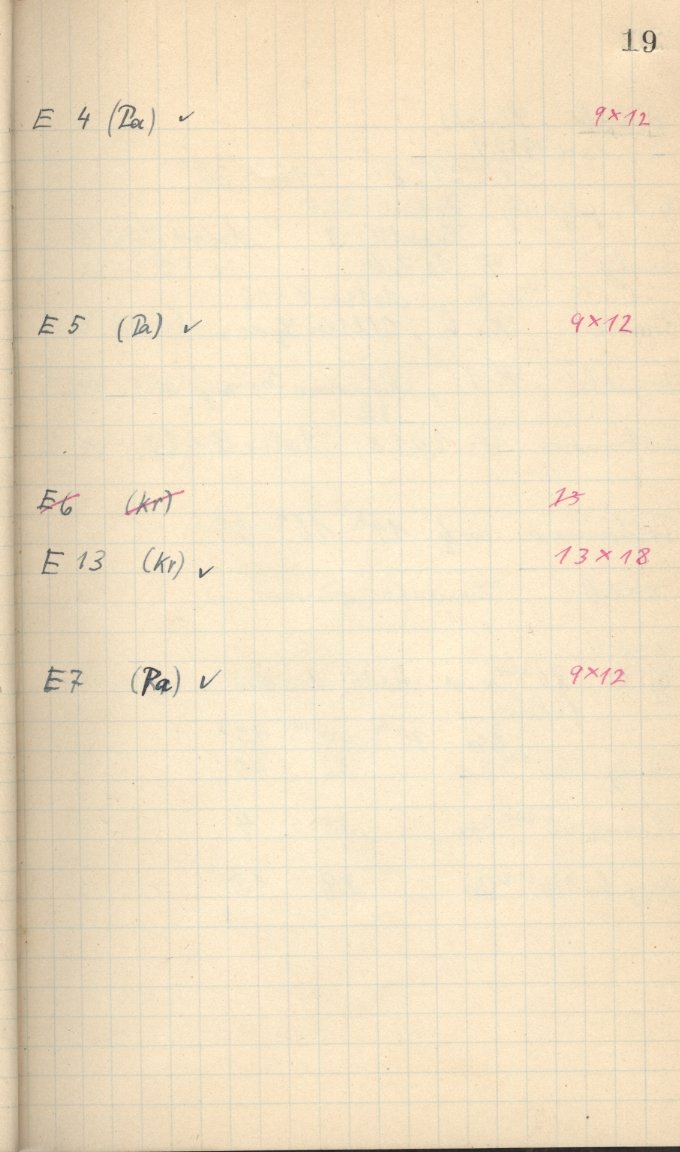 19
E 4 (Pa) ✓ 9×12
E 5 (Pa) ✓ 9×12
E6 (Kr) 13
E 13 (Kr) ✓ 13×18
E7 (Pa) ✓ 9×12